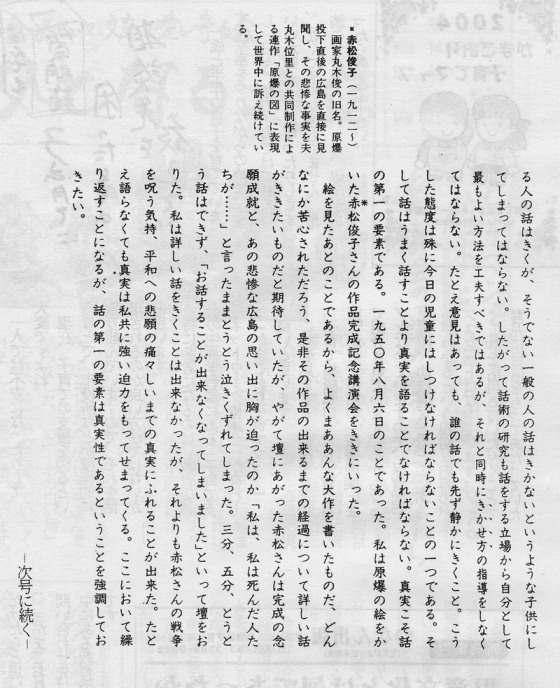 る人の話はきくが、そうでない一般の人の話はきかないというような子供にし
てしまってはならない。したがって話術の研究も話をする立場から自分として
最もよい方法を工夫すべきではあるが、それと同時にきかせ方の指導をしなく
てはならない。たとえ意見はあっても、誰の話でも先ず静かにきくこと。こう
した態度は殊に今日の児童にはしつけなければならないことの一つである。そ
して話はうまく話すことより真実を語ることでなければならない。真実こそ話
の第一の要素である。一九五〇年八月六日のことであった。私は原爆の絵をか
いた赤松俊子*さんの作品完成記念講演会をききにいった。
絵を見たあとのことであるから、よくまああんな大作を書いたものだ、どん
なにか苦心されただろう、是非その作品の出来るまでの経過について詳しい話
がききたいものだと期待していたが、やがて壇にあがった赤松さんは完成の念
願成就と、あの悲惨な広島の思い出に胸が迫ったのか「私は、私は死んだ人た
ちが……」と言ったままとうとう泣きくずれてしまった。三分、五分、とうと
う話はできず、「お話することが出来なくなってしまいました」といって壇をお
りた。私は詳しい話をきくことは出来なかったが、それよりも赤松さんの戦争
を呪う気持、平和への悲願の痛々しいまでの真実にふれることが出来た。たと
え語らなくても真実は私共に強い迫力をもってせまってくる。ここにおいて繰
り返すことになるが、話の第一の要素は真実性であるということを強調してお
きたい。
―次号に続く―
*赤松俊子(一九一二〜)
画家丸木俊の旧名。原爆
投下直後の広島を直接に見
聞し、その悲惨な事実を夫
丸木位里との共同制作によ
る連作「原爆の図」に表現
して世界中に訴え続けてい
る。